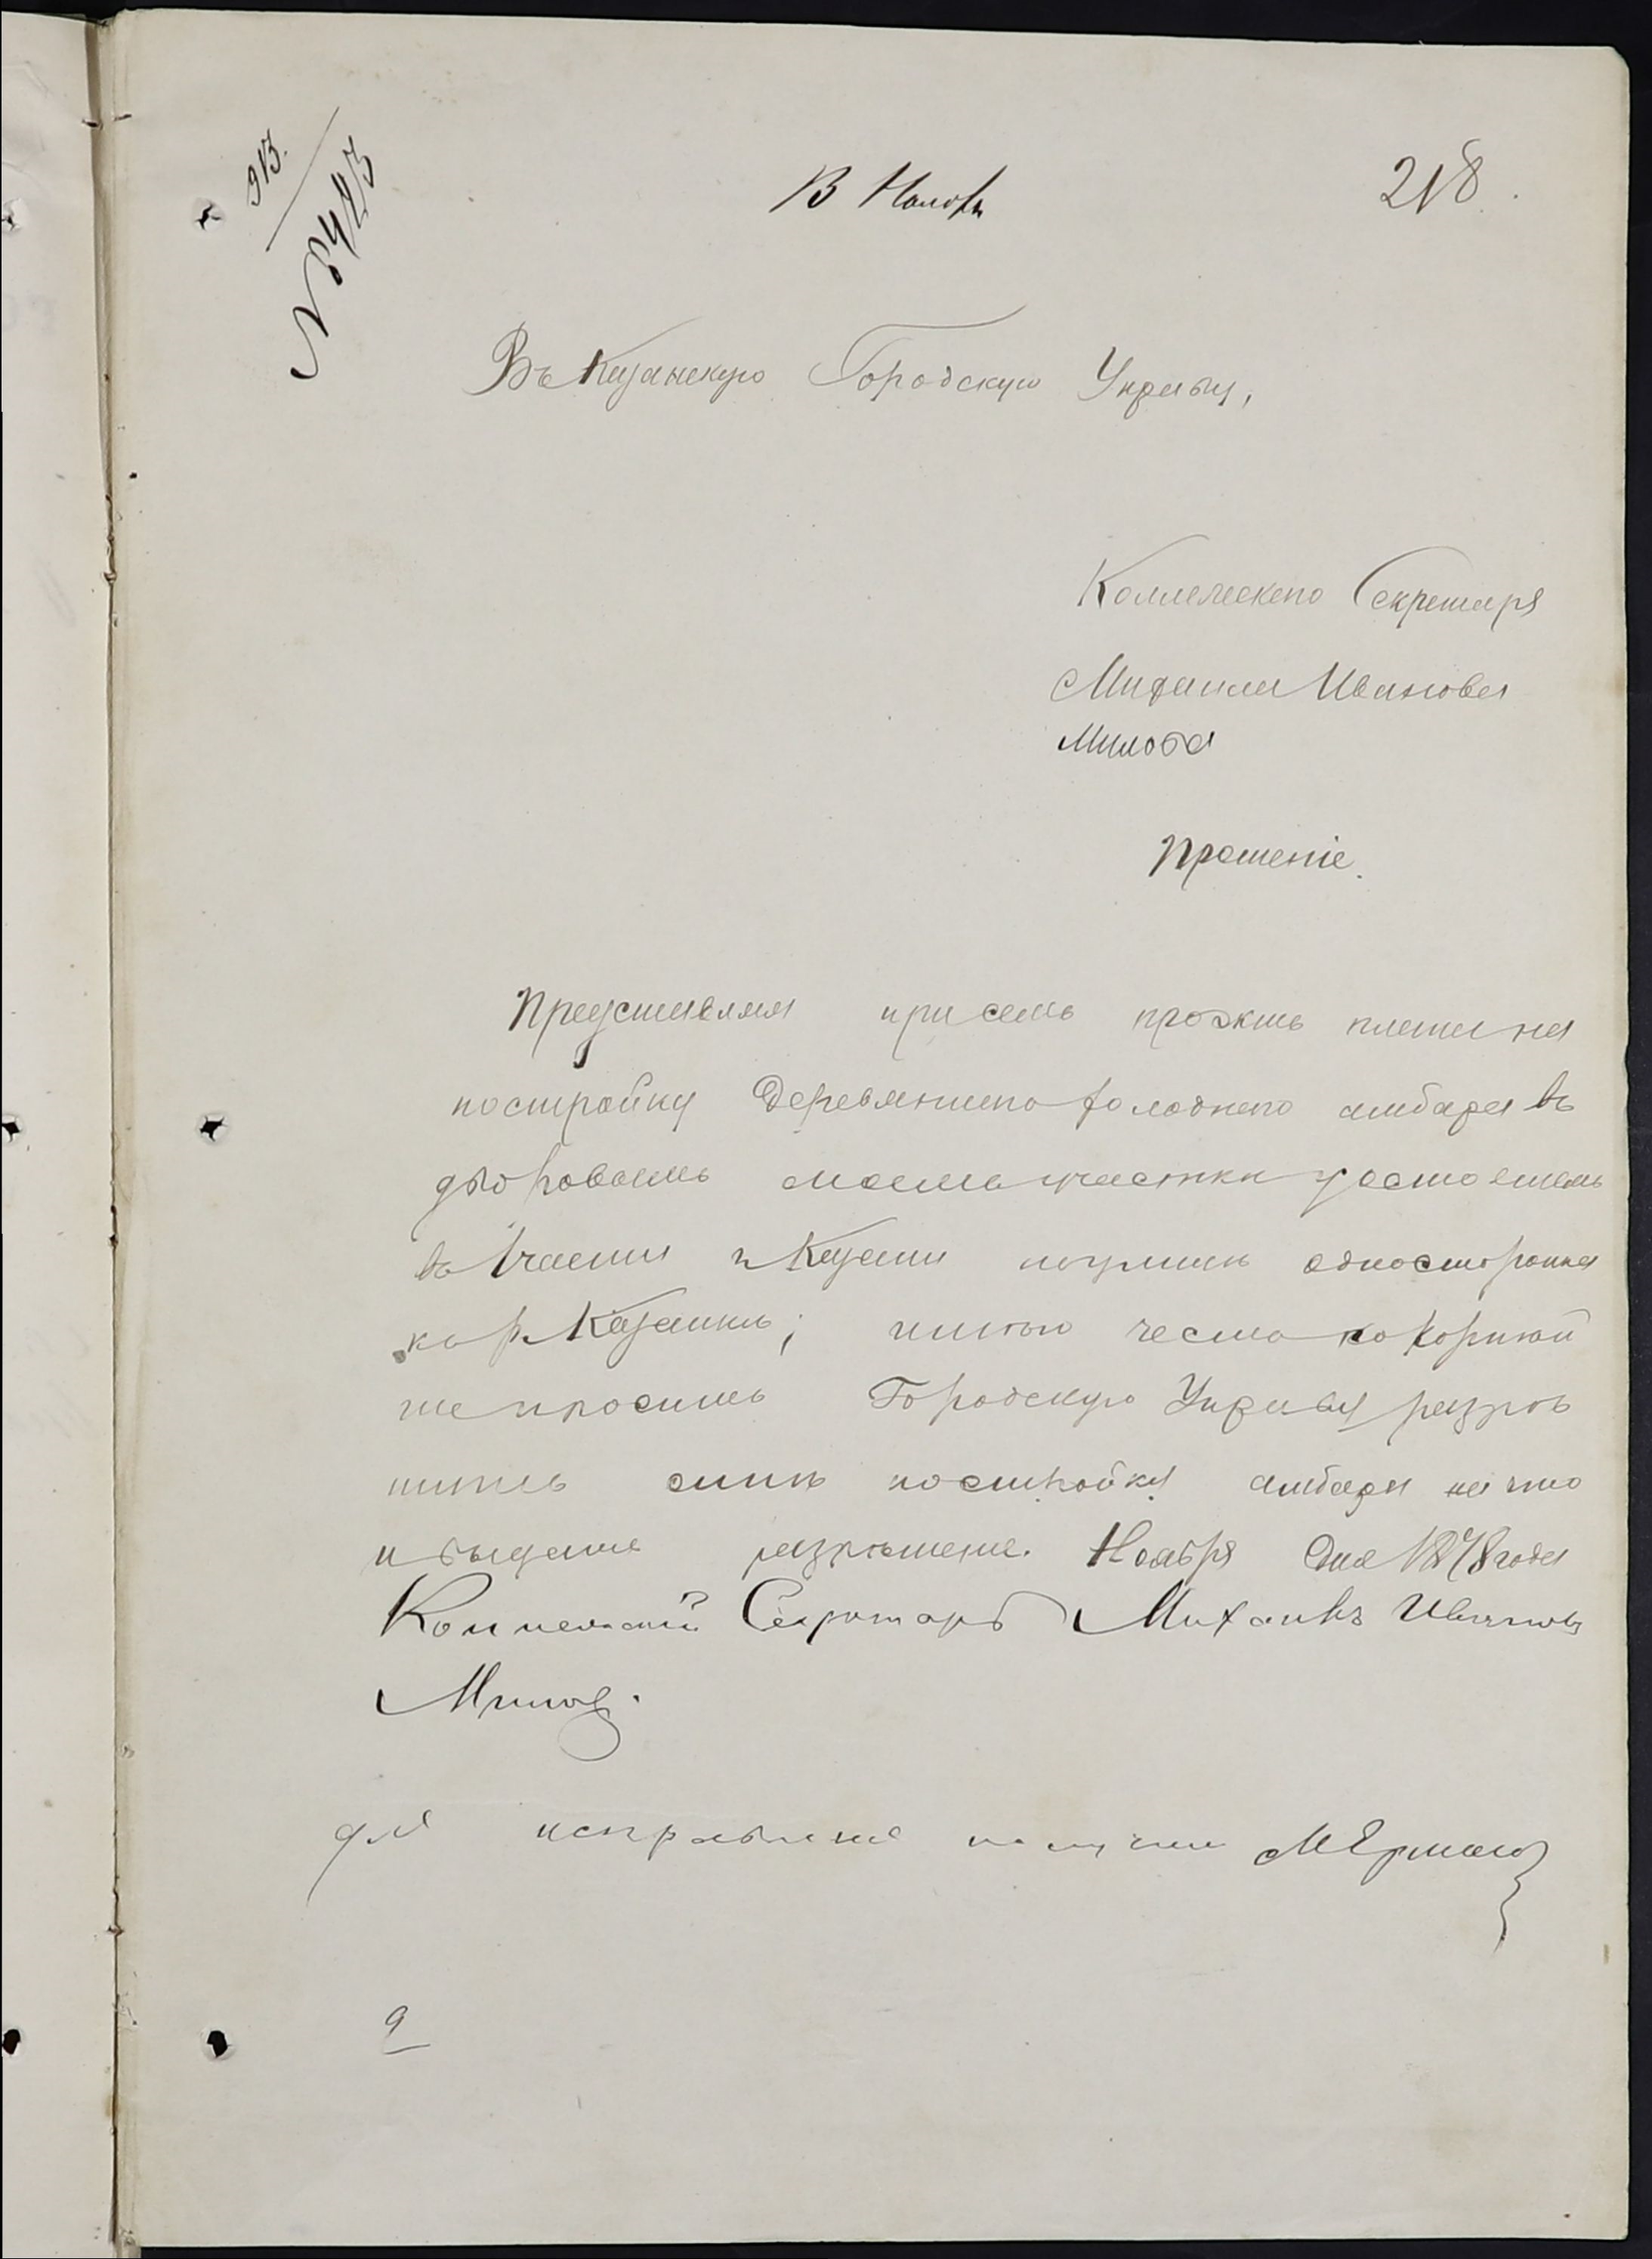 913.
№ 8423
13 Ноября
218.
Въ Казанскую Городскую Управу,
Коллежскаго Секретаря
Михаила Иванова
Милова
Прошеніе.
Представляя при семъ проэктъ плана на
постройку деревяннаго холоднаго амбара въ
дворовомъ моемъ участкѣ состоящемъ
въ 1 части г Казани
къ р. Казанкѣ; имѣю честь покорнѣй
ше просить Городскую Управу разрѣ
шить мнѣ постройку амбара на что
и выдать разрѣшеніе. Ноября дня 1878 года
Коллежскій Секретарь Михаилъ Ивановъ
Миловъ.
для исправленія получилъ
9